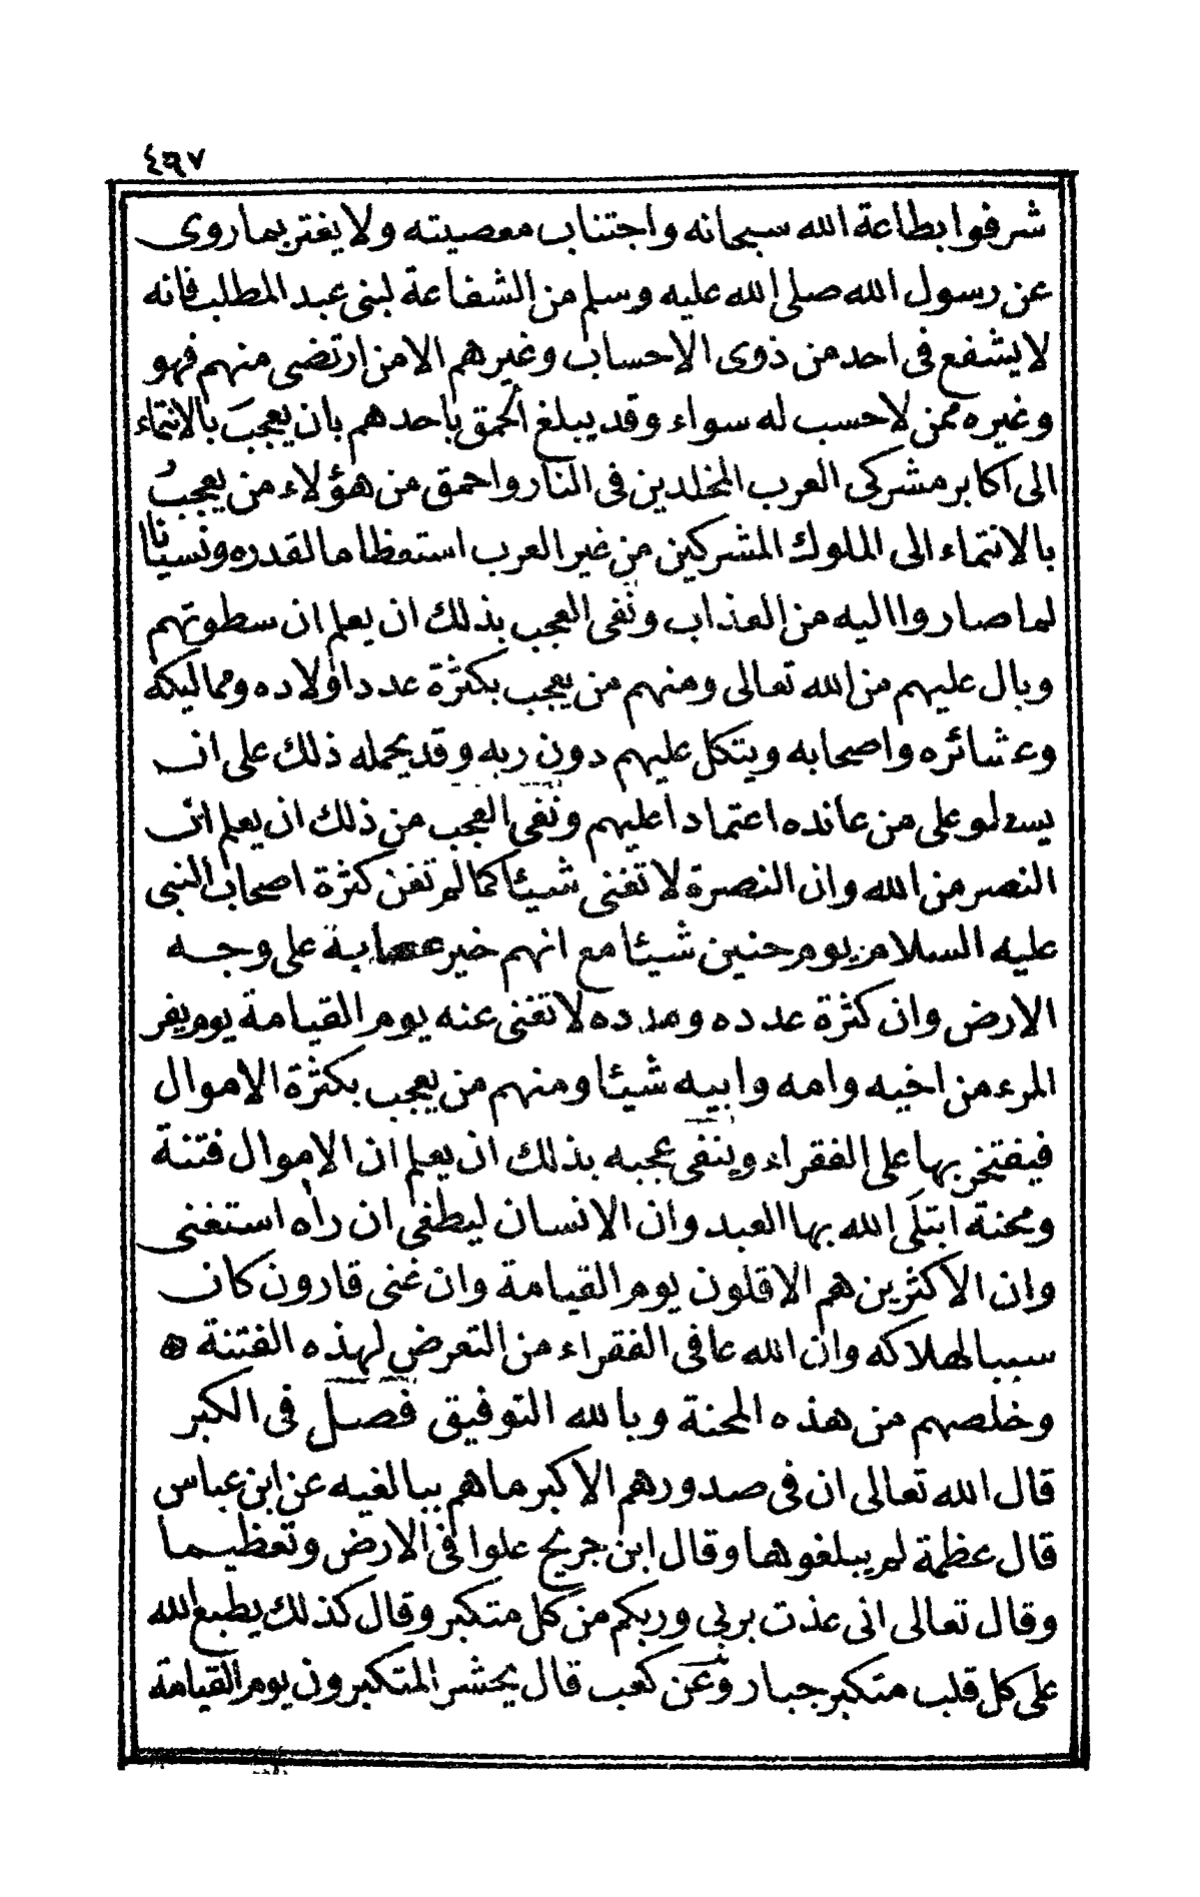 ٤٦٧
شرفوا بطاعة الله سبحانه واجتناب معصيته ولا يغتر بما روى
عن رسول الله صلى الله عليه وسلم من الشفاعة لبنى عبد المطلب فانه
لا يشفع فى احد من ذوى الاحساب وغيرهم الا من ارتضى منهم فهو
وغيره ممن لا حسب له سواء وقد يبلغ الحمق باحدهم بان يعجبَ بالانتماء
الى اكابر مشركى العرب المخلدين فى النار واحمق من هؤلاء من يعجبُ
بالانتماء الى الملوك المشركين من غير العرب استعظاما لقدره ونسيانا
لما صاروا اليه من العذاب ونفى العجب بذلك ان يعلم ان سطوتهم
وبال عليهم من الله تعالى ومنهم من يعجب بكثرة عدد اولاده ومماليكه
وعشائره واصحابه ويتكل عليهم دون ربه وقد يحمله ذلك على ان
يسطو على من عانده اعتمادا عليهم ونفى العجب من ذلك ان يعلم ان
النصر من الله وان النصرة لا تغنى شيئا كما لم تغن كثرة اصحاب النبى
عليه السلام يوم حنين شيئا مع انهم خير عصابة على وجه
الارض وان كثرة عدده ومدده لا تغنى عنه يوم القيامة يوم يفر
المرء من اخيه وامه وابيه شيئا ومنهم من يعجب بكثرة الاموال
فيفتخر بها على الفقراء وينفى عجبه بذلك ان يعلم ان الاموال فتنة
ومحنة ابتلَى الله بها العبد وان الانسان ليطغى ان رأه استغنى
وان الاكثرين هم الاقلون يوم القيامة وان غنى قارون كان
سببا لهلاكه وان الله عافى الفقراء من التعرض لهذه الفتنة
وخلصهم من هذه المحنة وبالله التوفيق فصل فى الكبر
قال الله تعالى ان فى صدورهم الا كبر ما هم ببالغيه عن ابن عباس
قال عظمة لم يبلغوها وقال ابن جريج علوا فى الارض وتعظيما
وقال تعالى انى عذت بربى وربكم من كل متكبر وقال كذلك يطبع الله
على كل قلب متكبر جبار وعن كعب قال يحشر المتكبرون يوم القيامة